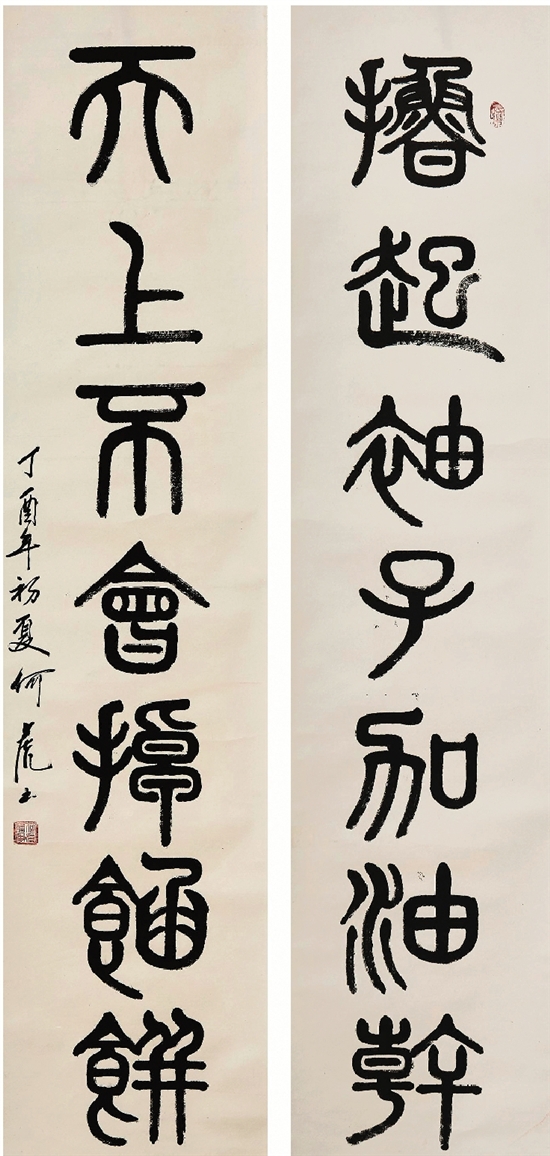 擼起袖子加油幹
天上不會掉餡餅
丁酉年初夏何书